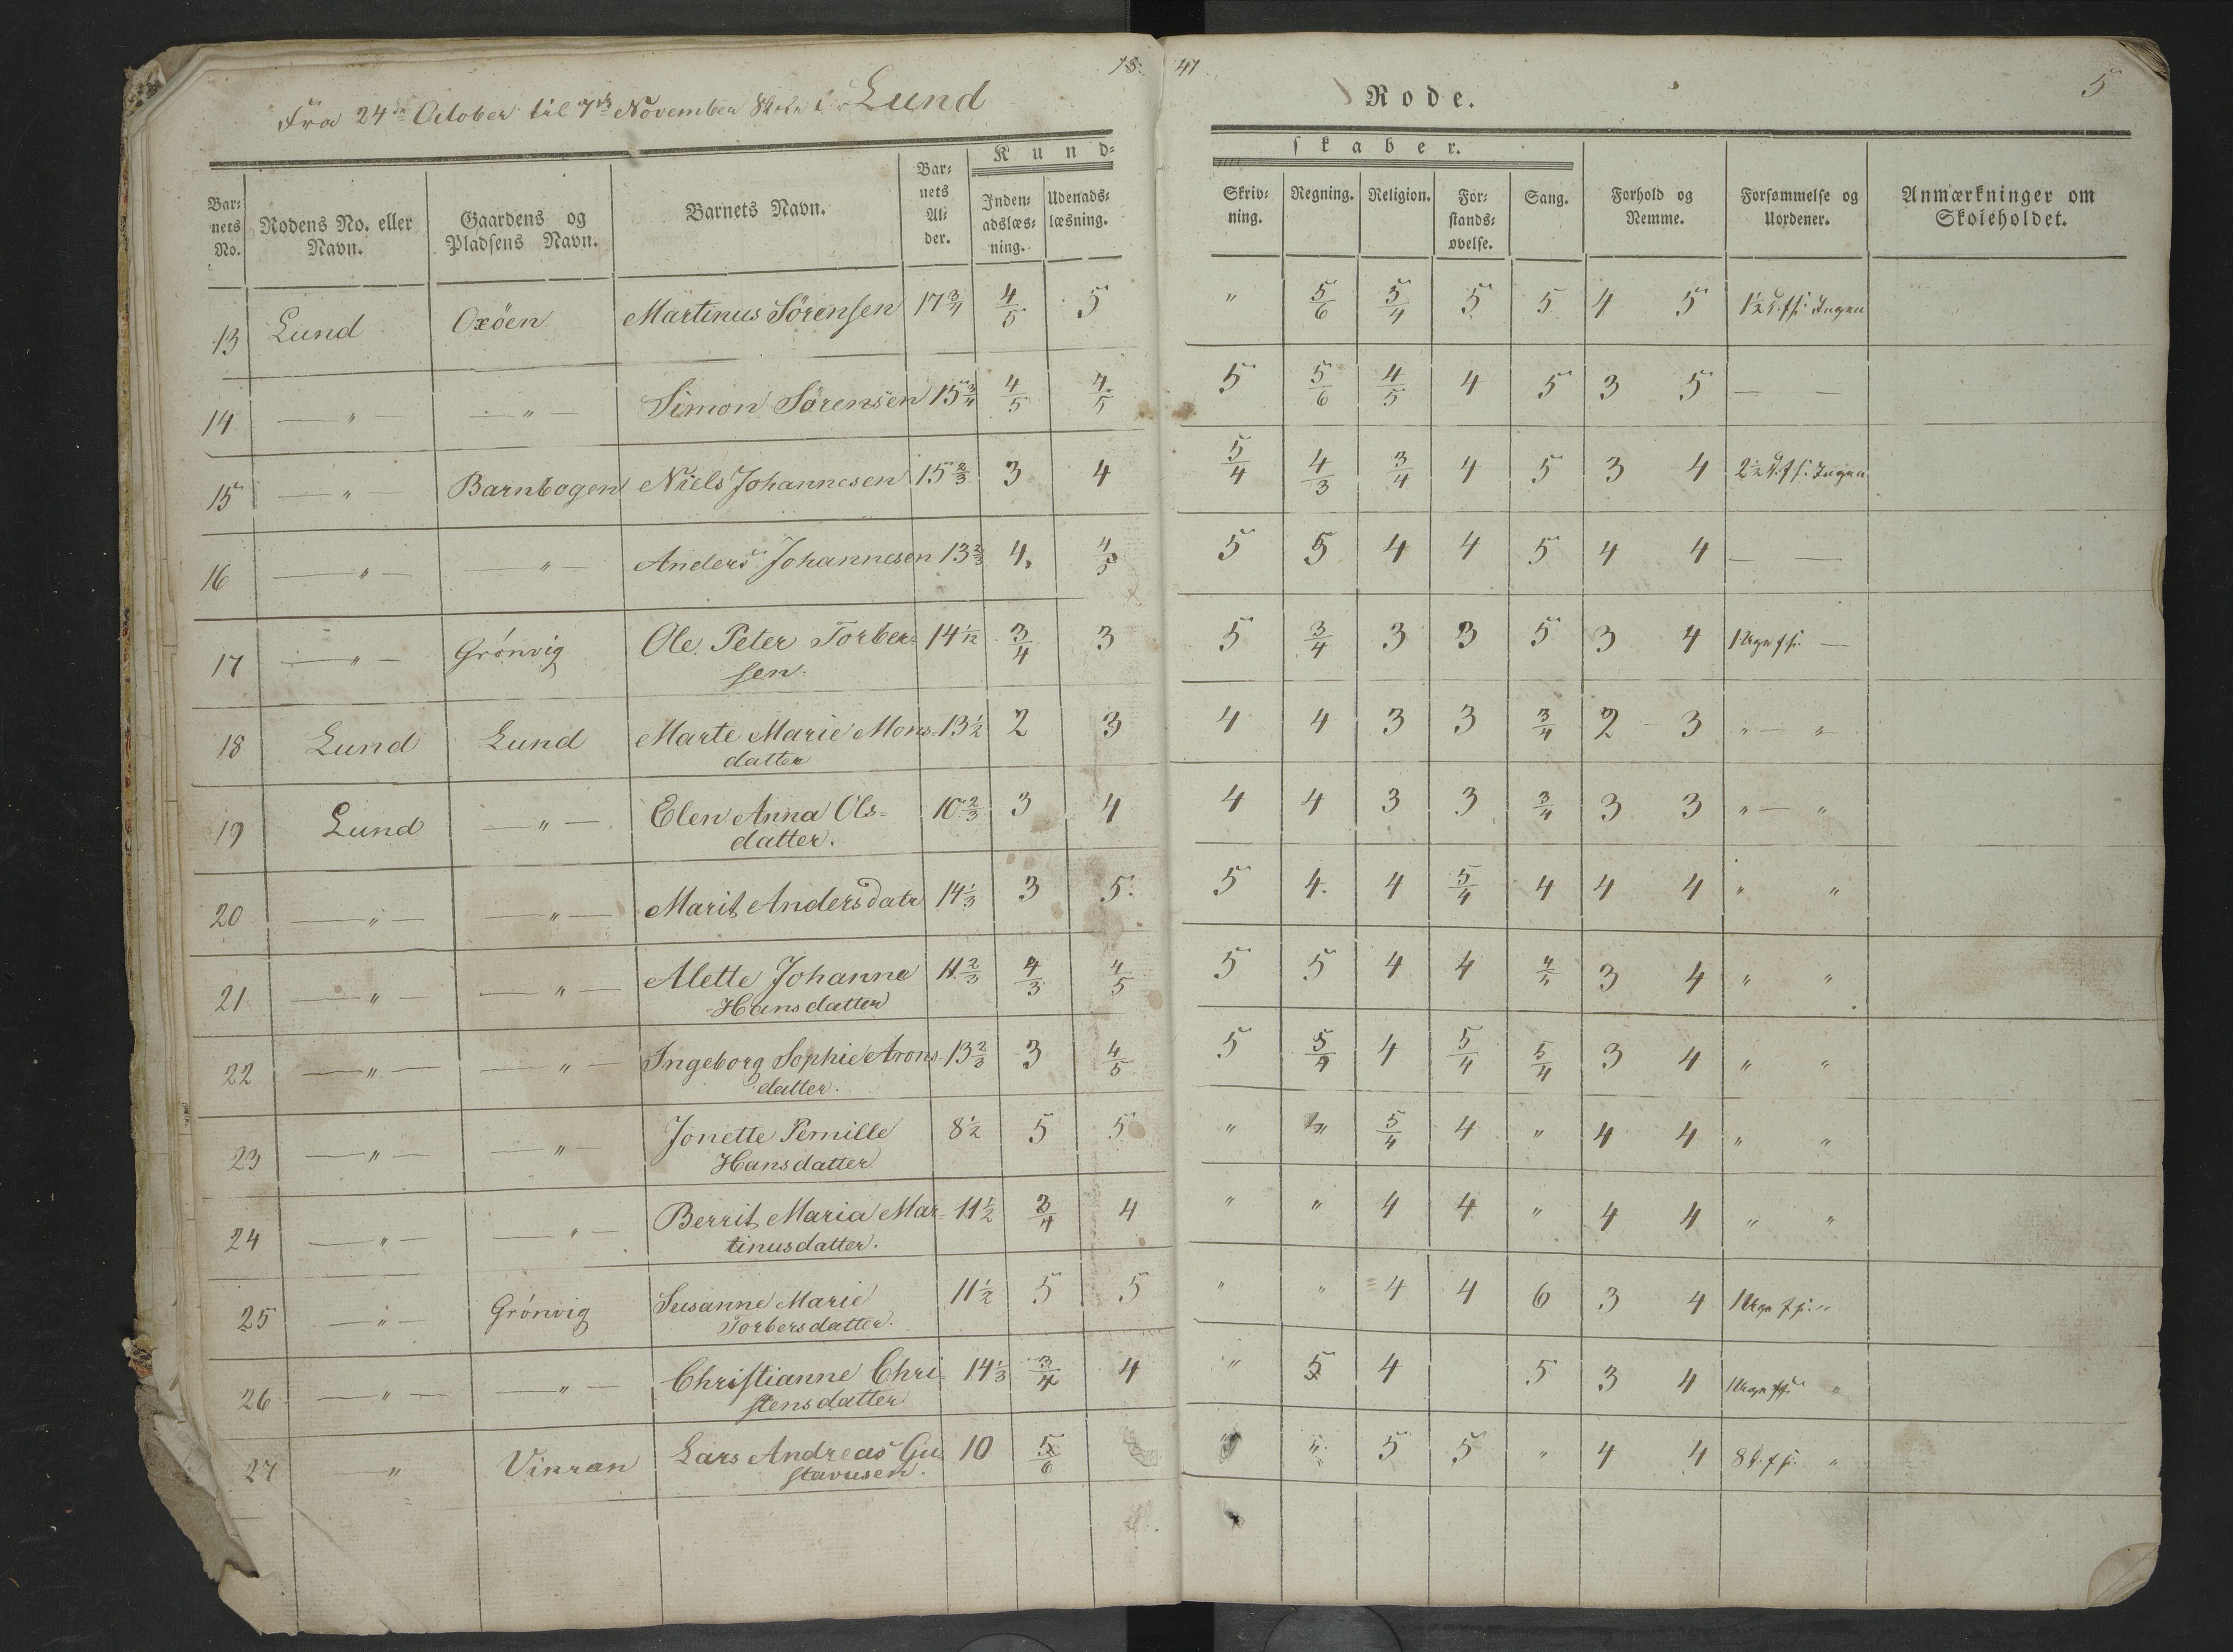 18 47
5
Fra 24de October til 7de November Skole i Lund Rode.
Barnets No. | Rodens No. eller Navn. | Gaardens og Pladsens Navn. | Barnets Navn. | Barnets Alder. | Kundskaber. Indenadslæsning. | Udenadslæsning. | Skrivning. | Regning. | Religion. | Forstandsøvelse. | Sang. | Forhold og Nemme. | Forsømmelse og Uordener. | Anmærkninger om Skoleholdet.
13 Lund Oxöen Martinus Sörensen 17 3/4 4/5 5 " 5/6 5/4 5 5 4 5 1½ d. fs: Ingen
14 — " — — " — Simon Sörensen 15 3/4 4/5 4/5 5 5/6 4/5 4 5 3 5 — —
15 — " — Barnbogen Niels Johannesen 15 2/3 3 4 5/4 4/3 3/4 4 5 3 4 2½ d. fs. Ingen
16 — " — — " — Anders Johannesen 13 2/3 4 4/5 5 5 4 4 5 4 4 — —
17 — " — Grönvig Ole Peter Torber= 14 1/12 3/4 3 5 3/4 3 3 5 3 4 1 Uge fs: —
sen.
18 Lund Lund Marte Marie Mons- 13½ 2 3 4 4 3 3 3/4 2 3 " — "
datter
19 Lund — " — Elen Anna Ols= 10 2/3 3 4 4 4 3 3 3/4 3 3 " — "
datter.
20 — " — — " — Marit Andersdatr 14 1/3 3 5. 5 4. 4 5/4 4 4 4 " "
21 — " — — " — Alette Johanna 11 2/3 4/3 4/5 5 5 4 4 4/5 3 4 " "
Hansdatter
22 — " — — " — Ingeborg Sophie Arons- 13 2/3 3 4/5 5 5/4 4 5/4 5/4 3 4 " "
datter.
23 — " — — " — Jonette Pernille 8½ 5 5 " " 5/4 4 " 4 4 " "
Hansdatter
24 — " — — " — Berrit Maria Mar= 11½ 3/4 4 " " 4 4 " 4 4 " "
tinusdatter.
25 — " — Grönvig Susanne Marie 11½ 5 5 " " 4 4 6 3 4 1 Uge fs: "
Torbersdatter.
26 — " — — " — Christianne Chri= 14 1/3 3/4 4 " 5 4 5 3 4 1 Uge fs: "
stensdatter
27 " Vinran Lars Andreas Gu 10 5/6 " 5 5 " 4 4 8 d. fs: "
stavusen.